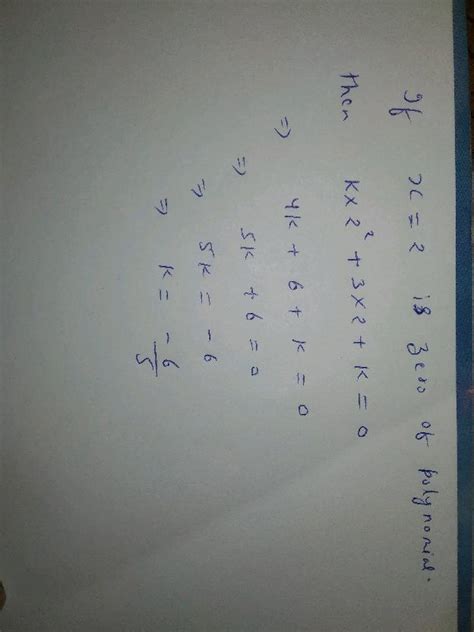 If x = 2 is zero of polynomial.
then K×2² + 3×2 + K = 0
⇒ 4K + 6 + K = 0
⇒ 5K + 6 = 0
⇒ 5K = -6
⇒ K = -6/5